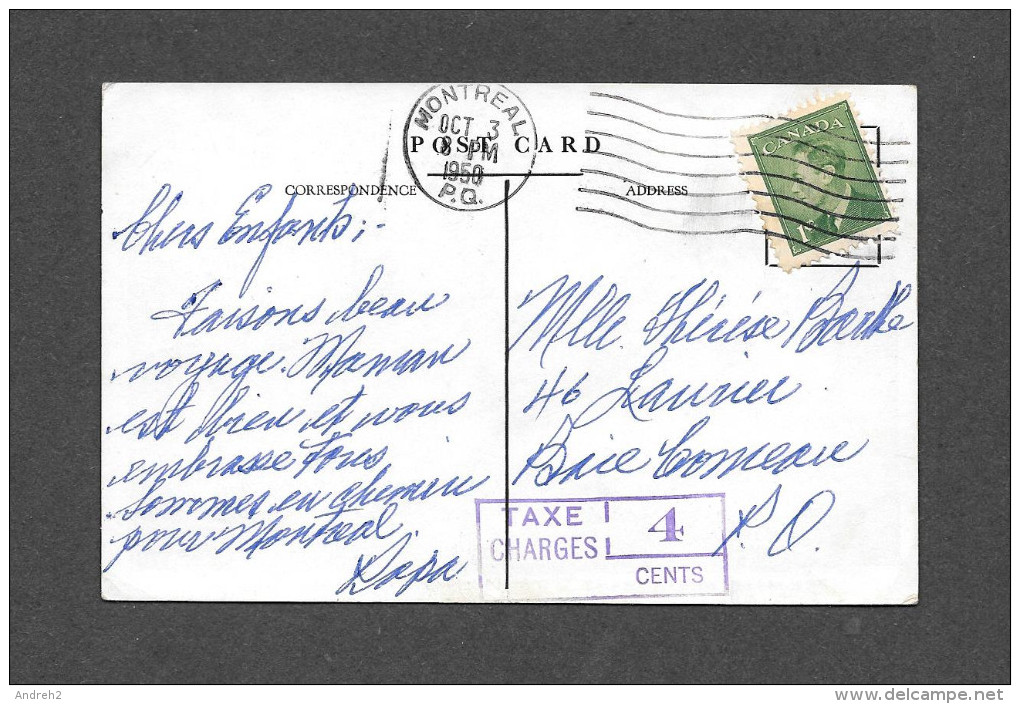 MONTREAL
OCT 3
8 PM
1950
P.Q.
POST CARD
CANADA
1
CORRESPONDENCE
ADDRESS
Chers Enfants;-
Faisons beau
voyage. Maman
est bien et vous
embrasse Tous
Sommes en chemin
pour Montreal
Papa
Mlle. Thérèse Barthe
46 Laurier
Baie Comeau
P.Q.
TAXE
CHARGES
4
CENTS
Andreh2
www.delcampe.net